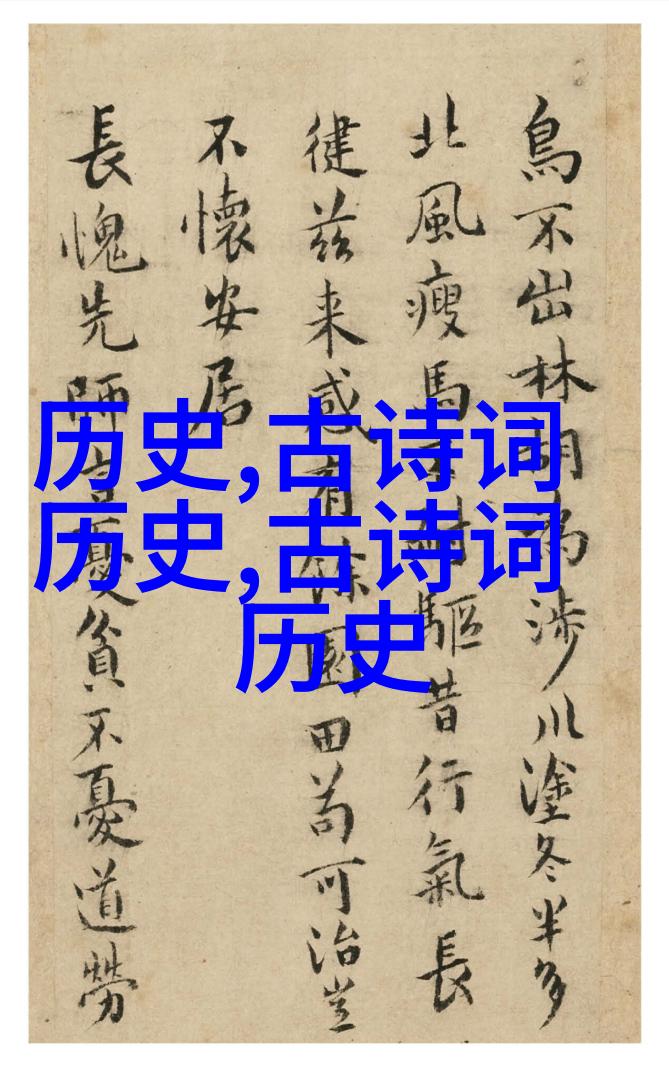 鳥不出林胡為涉川塗冬半多
北風瘦馬不耐驅昔行氣長
健茲来感有餘園田苟可治豈
不懷安居
長愧先師言憂貧不憂道勞
历史,古诗词
历史,古诗词
历史